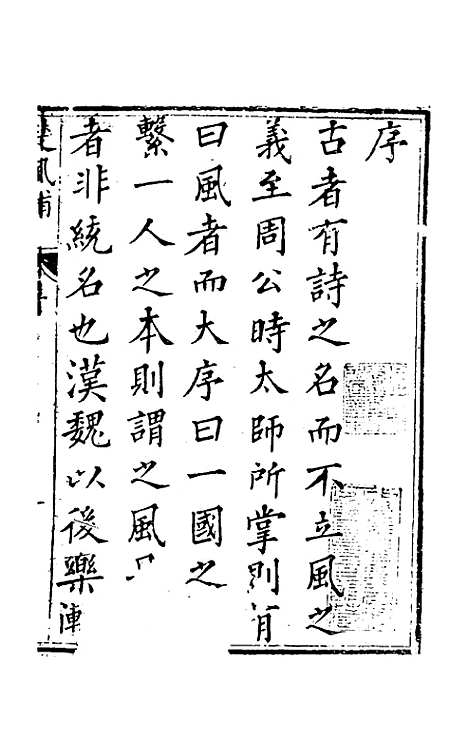 序
古者有詩之名而不立風之
義至周公時太師所掌則有
曰風者而大序曰一國之
繫一人之本則謂之風
者非統名也漢魏以後樂
楚風補